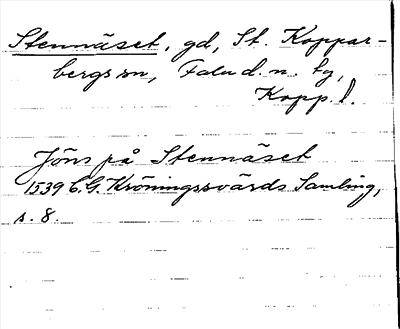 Stennäset, gd, St. Koppar-
bergs sn, Falu d. n. tg,
Kopp. l.
Jöns på Stennäset
1539 C.G. Kröningssvärds Samling,
s. 8.